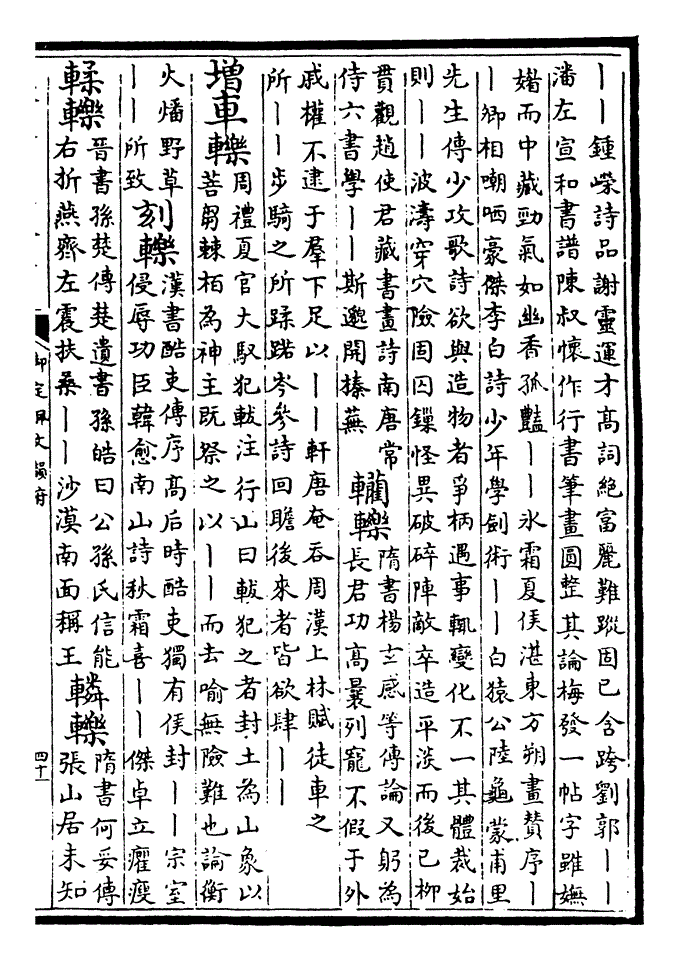 ——鍾嶸詩品謝靈運才高詞絕富麗難蹤固已含跨劉郭——
潘左宣和書譜陳叔懷作行書筆畫圓整其論梅發一帖字雖嫵
媚而中藏勁氣如幽香孤豔——氷霜夏侯湛東方朔畫賛序—
—卿相嘲哂豪傑李白詩少年學劍術——白猿公陸龜蒙甫里
先生傳少攻歌詩欲與造物者爭柄遇事輒變化不一其體裁始
則——波濤穿穴險固囚鏁怪異破碎陣敵卒造平淡而後已柳
貫觀趙使君藏書畫詩南唐常
侍六書學——斯邈開榛蕪
轥轢
隋書楊玄感等傳論又躬為
長君功高曩列寵不假于外
戚權不逮于羣下足以——軒唐奄吞周漢上林賦徒車之
所——步騎之所蹂蹃岑參詩回瞻後來者皆欲肆——
増車轢
周禮夏官大馭犯軷注行山曰軷犯之者封土為山象以
菩芻棘柏為神主既祭之以——而去喻無險難也論衡
火燔野草
——所致
刻轢
漢書酷吏傳序高后時酷吏獨有侯封——宗室
侵辱功臣韓愈南山詩秋霜喜——傑卓立癯瘦
輮轢
晉書孫楚傳楚遺書孫皓曰公孫氏信能
右折燕齊左震扶桑——沙漠南面稱王
轔轢
隋書何妥傳
張山居未知
御定佩文韻府
四十